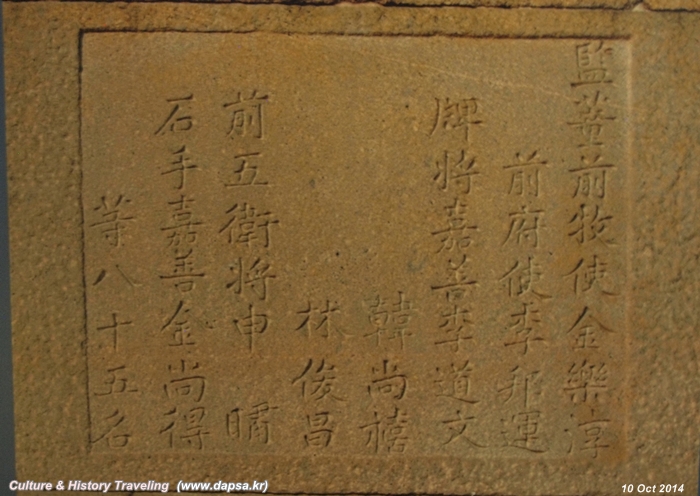 監董前牧使金樂淳
前府使李邦運
牌將嘉善李道文
韓尚禧
林俊昌
前五衛將申
石手嘉善金尚得
等八十五名
Culture & History Traveling (www.dapsa.kr)
10 Oct 2014